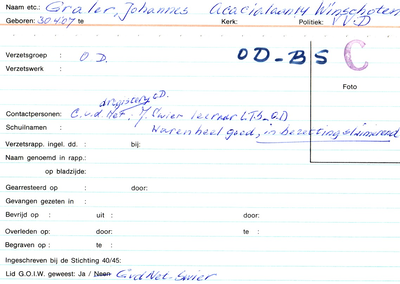 Naam etc.: Graler, Johannes Acacialaan 4 Winschoten
Geboren: 30.4.07 te Kerk: Politiek: VVD
OD-BS C
Verzetsgroep : O.D.
Verzetswerk :
Foto
drogisterij O.D.
Contactpersonen: C.v.d. Nef, leeraar L.T.S. - O.D
Schuilnamen : waren heel goed, in bezetting sluimerend
Verzetsrapp. ingel. dd. : bij:
Naam genoemd in rapp.:
op bladzijde:
Gearresteerd op : door:
Gevangen gezeten in :
Bevrijd op : uit : door:
Overleden op: door: te :
Begraven op : te :
Ingeschreven bij de Stichting 40/45:
Lid G.O.I.W. geweest: Ja / Neen